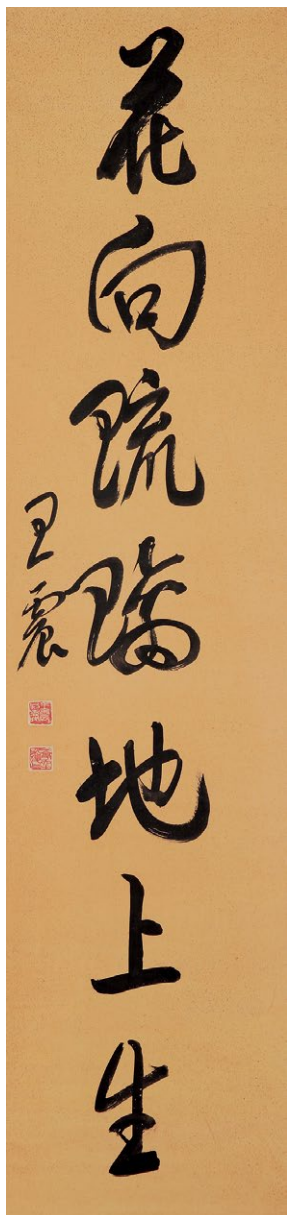 花向琉璃地上生
王震